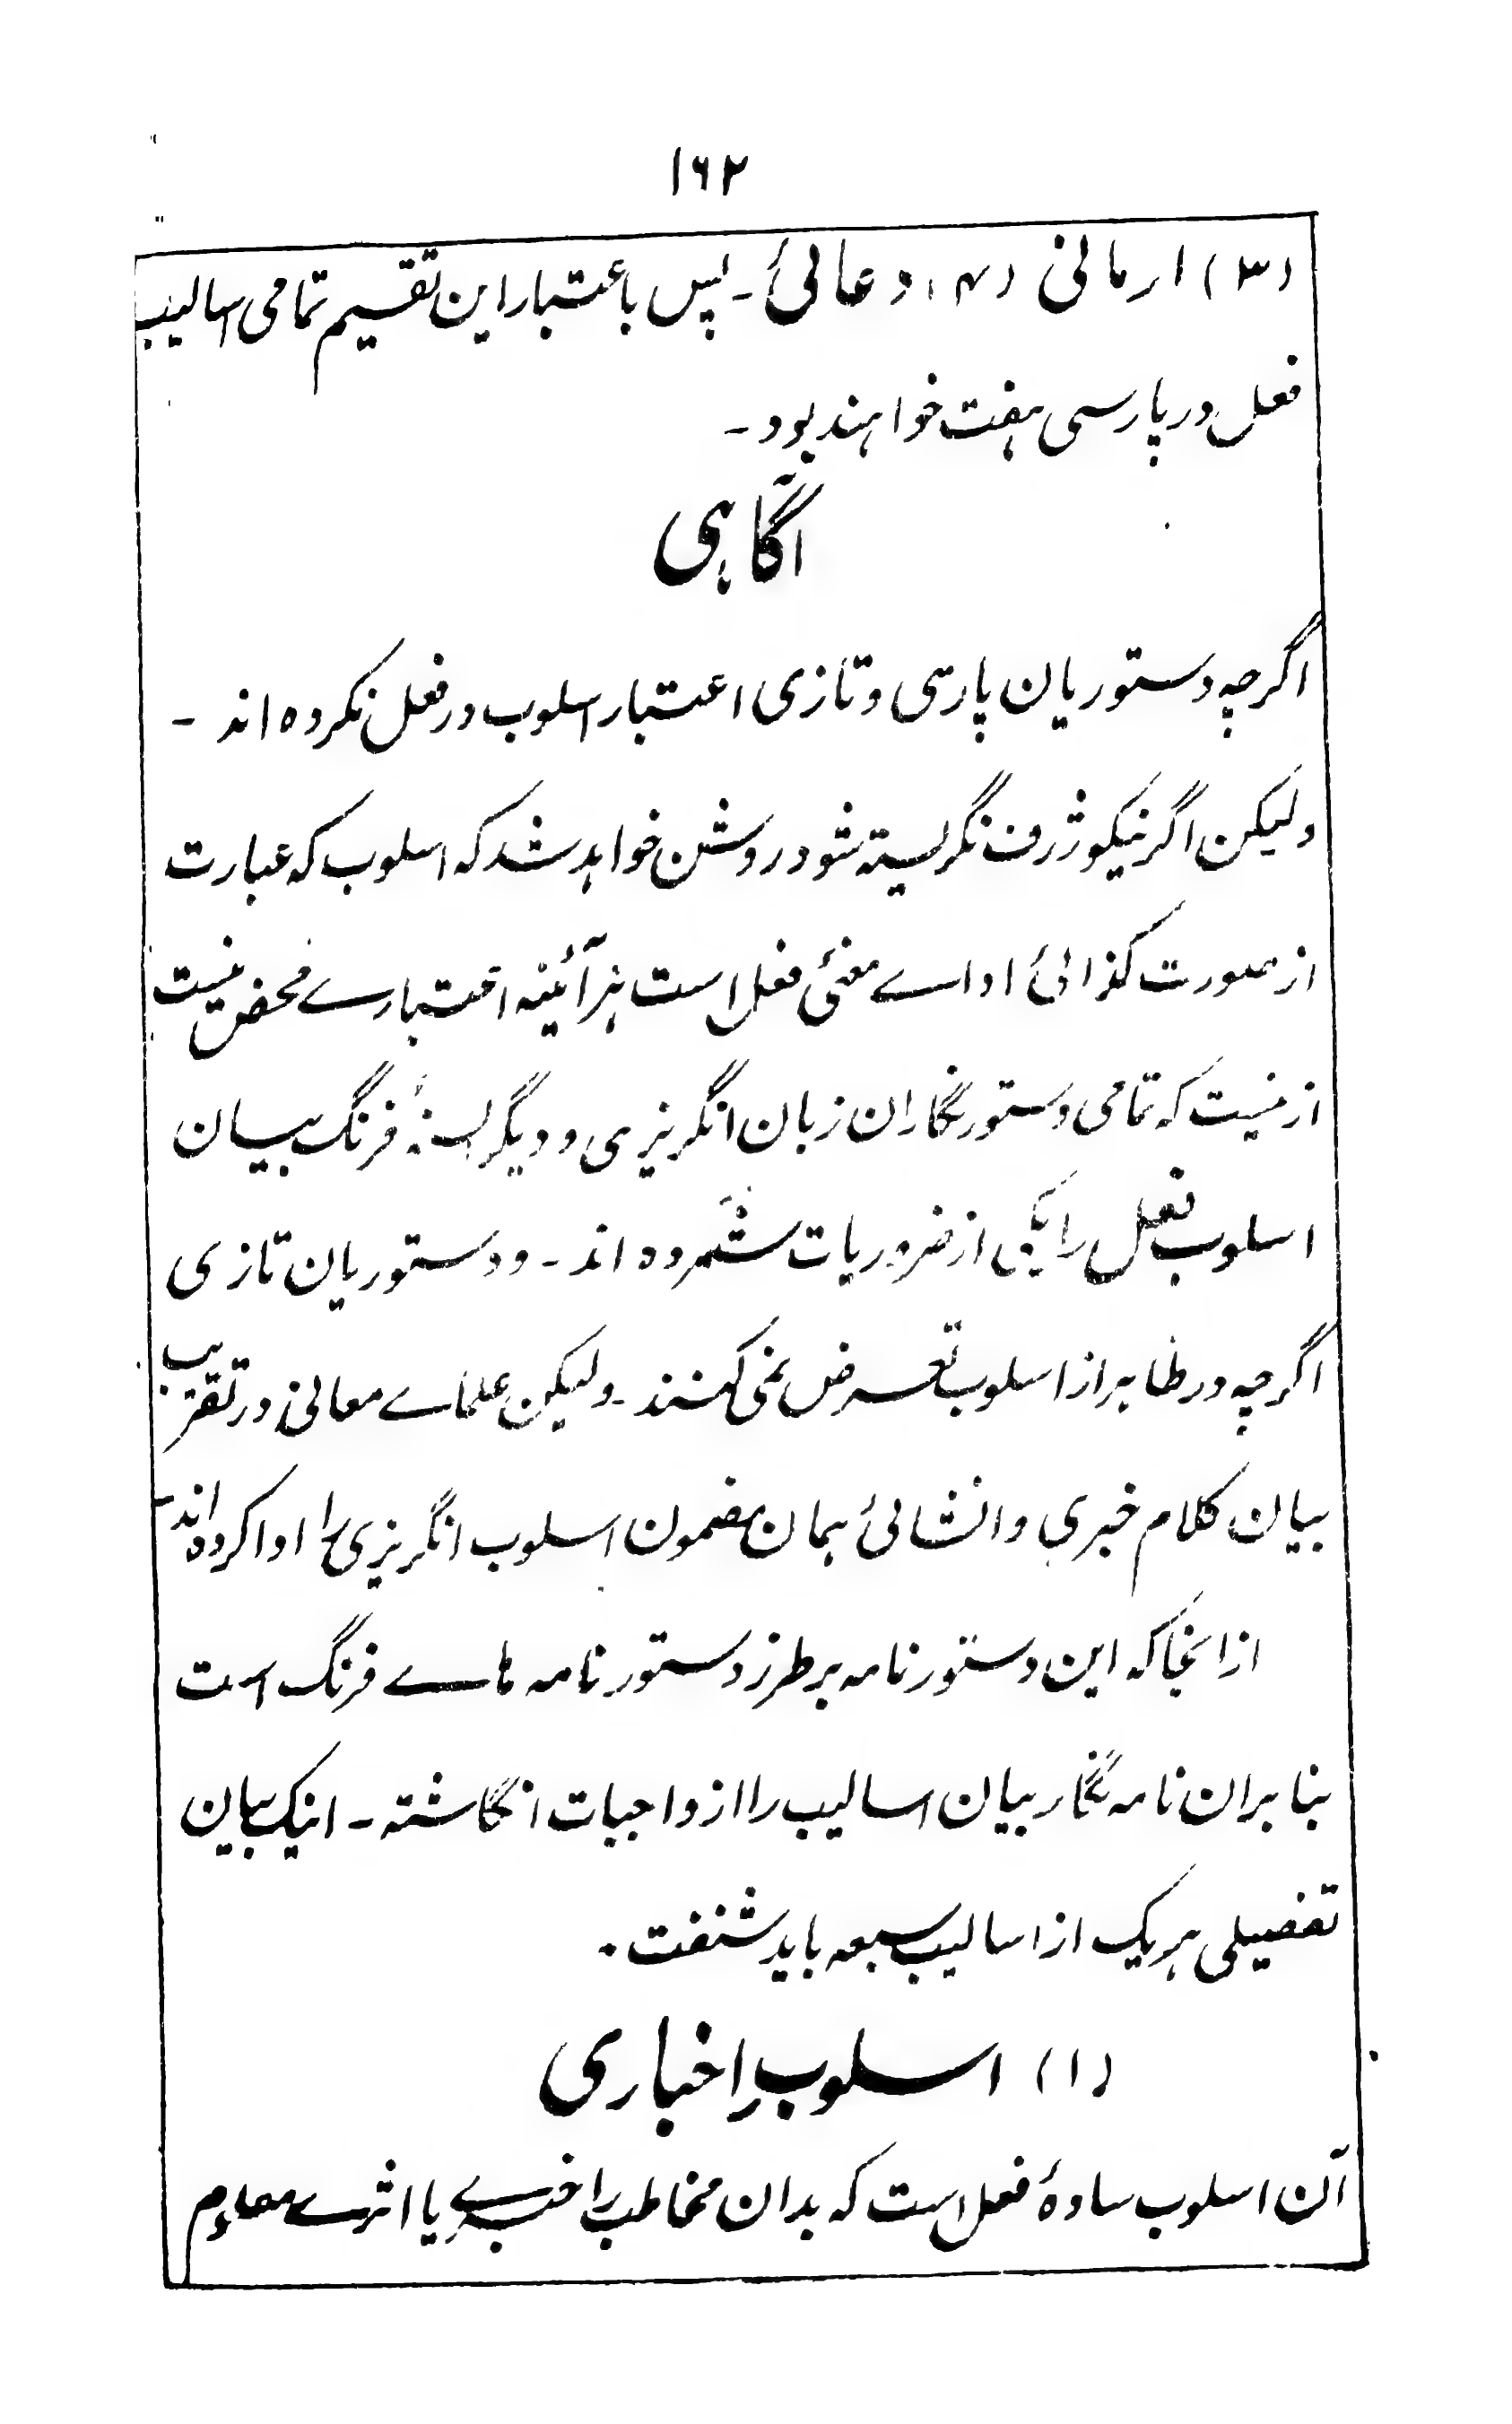 ۱۶۲
(۳) ارمانی (۴) دعائی۔ پس باعتبار این تقسیم تمامی اسالیب
فعل در پارسی ہفت خواہند بود۔
آگاہی
اگرچہ دستوریان پارسی و تازی اعتبار اسلوب در فعل نکردہ اند۔
ولیکن اگر نیکو ژرف نگریستہ شود روشن خواہد شد کہ اسلوب کہ عبارت
از صورت کذائی اداے معنی فعل است ہر آئینہ اعتبارے محض نیست
ازینست کہ تمامی دستور نگاران زبان انگریزی و دیگر السنۂ فرنگ بیان
اسلوب فعل را یکی از ضروریات شمردہ اند۔ و دستوریان تازی
اگرچہ در ظاہر از اسلوب تعرض نمی کنند۔ ولیکن علماے معانی در تقریب
بیان کلام خبری و انشائی ہمان مضمون اسلوب انگریزی را ادا کردہ اند۔
از انجا کہ این دستور نامہ بر طرز دستور نامہ ہاے فرنگ است
بنا بران نامہ نگار بیان اسالیب را از واجبات انگاشتہ۔ اینک بیان
تفصیلی ہر یک از اسالیب سبعہ باید شنفت۔
(۱) اسلوبِ اخباری
آن اسلوب سادۂ فعل است کہ بدان مخاطب را خبرے یا اثرے معلوم